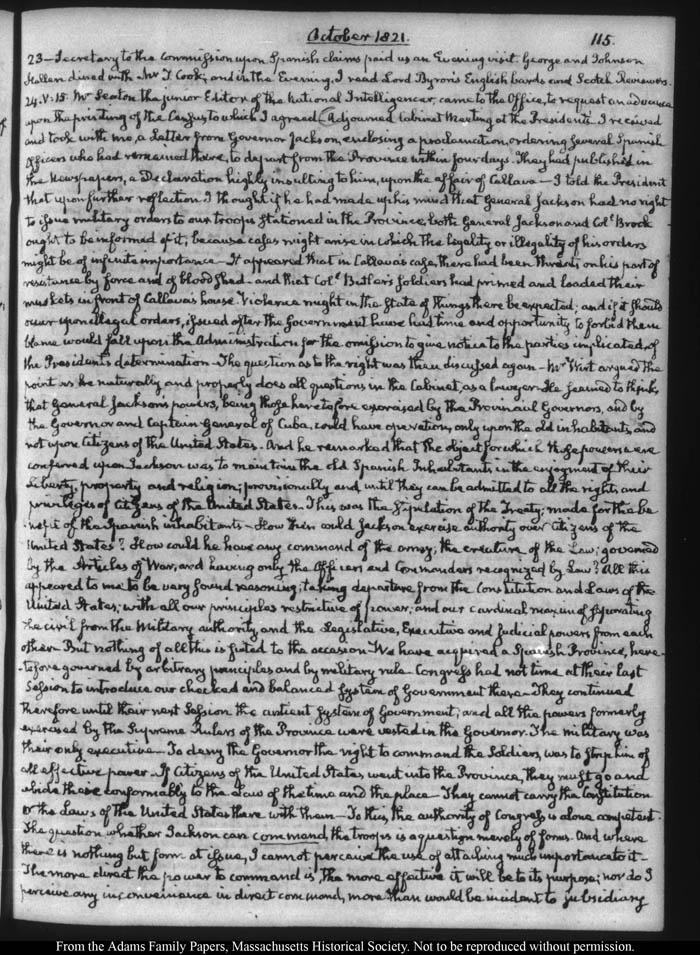 October 1821.
115.
23 — Secretary to the Commission upon Spanish claims paid us an Evening visit. George and Johnson
Hellen dined with Mr T. Cook; and in the Evening, I read Lord Byron's English bards and Scotch Reviewers.
24. V:15. Mr Seaton the junior Editor of the National Intelligencer, came to the Office, to request an advance
upon the printing of the Census to which I agreed. Adjourned Cabinet Meeting at the President's. I received
and took with me, a Letter from Governor Jackson, enclosing a proclamation, ordering several Spanish
Officers who had remained there, to depart from the Province within four days. They had published in
the Newspapers, a Declaration highly insulting to him, upon the affair of Callava — I told the President
that upon further reflection I thought if he had made up his mind that General Jackson had no right
to issue military orders to our troops stationed in the Province, both General Jackson and Coll Brook
ought to be informed of it, because cases might arise in which the legality or illegality of his orders
might be of infinite importance — It appeared that in Callava's case, there had been threats on his part of
resistance by force and of bloodshed — and that Coll Butler's soldiers had primed and loaded their
muskets in front of Callava's house. Violence might in the state of things there be expected; and if it should
occur upon illegal orders, issued after the Government have had time and opportunity to forbid them
blame would fall upon the Administration for the omission to give notice to the parties implicated, of
the President's determination — The question as to the right was then discussed again — Mr Wirt argued the
point as he naturally and properly does all questions in the Cabinet, as a lawyer. He seemed to think,
that General Jackson's powers, being those heretofore exercised by the Provincial Governors, and by
the Governor and Captain General of Cuba, could have operation, only upon the old inhabitants, and
not upon Citizens of the United States. And he remarked that the object for which those powers were
conferred upon Jackson was to maintain the old Spanish Inhabitants in the enjoyment of their
liberty, property and religion; provisionally and until they can be admitted to all the rights and
privileges of Citizens of the United States. This was the stipulation of the Treaty; made for the be-
nefit of the Spanish inhabitants — How then could Jackson exercise authority over Citizens of the
United States? How could he have any command of the army, the creature of the Law; governed
by the Articles of War, and having only the Officers and Commanders recognized by Law? All this
appeared to me to be very sound reasoning; taking departure from the Constitution and Laws of the
United States; with all our principles restrictive of power; and our cardinal maxim of separating
the civil from the Military authority and the Legislative, Executive and Judicial powers from each
other. But nothing of all this is suited to the occasion. We have acquired a Spanish Province, here-
tofore governed by arbitrary principles and by military rule. Congress had not time at their last
Session to introduce our checked and balanced system of Government there — They continued
therefore until their next Session the antient system of Government; and all the powers formerly
exercised by the Supreme Rulers of the Province were vested in the Governor. The military was
their only executive — To deny the Governor the right to command the Soldiers, was to strip him of
all effective power — If Citizens of the United States went into the Province, they must go and
abide there conformably to the Law of the time and the place — They cannot carry the Constitution
or the Laws of the United States there with them — To this, the authority of Congress is alone competent.
The question whether Jackson can command the troops is a question merely of form. And where
there is nothing but form at issue, I cannot perceive the use of attaching much importance to it —
The more direct the power to command is, the more effective it will be to its purpose; nor do I
perceive any inconvenience in direct command, more than would be incident to subsidiary
From the Adams Family Papers, Massachusetts Historical Society. Not to be reproduced without permission.